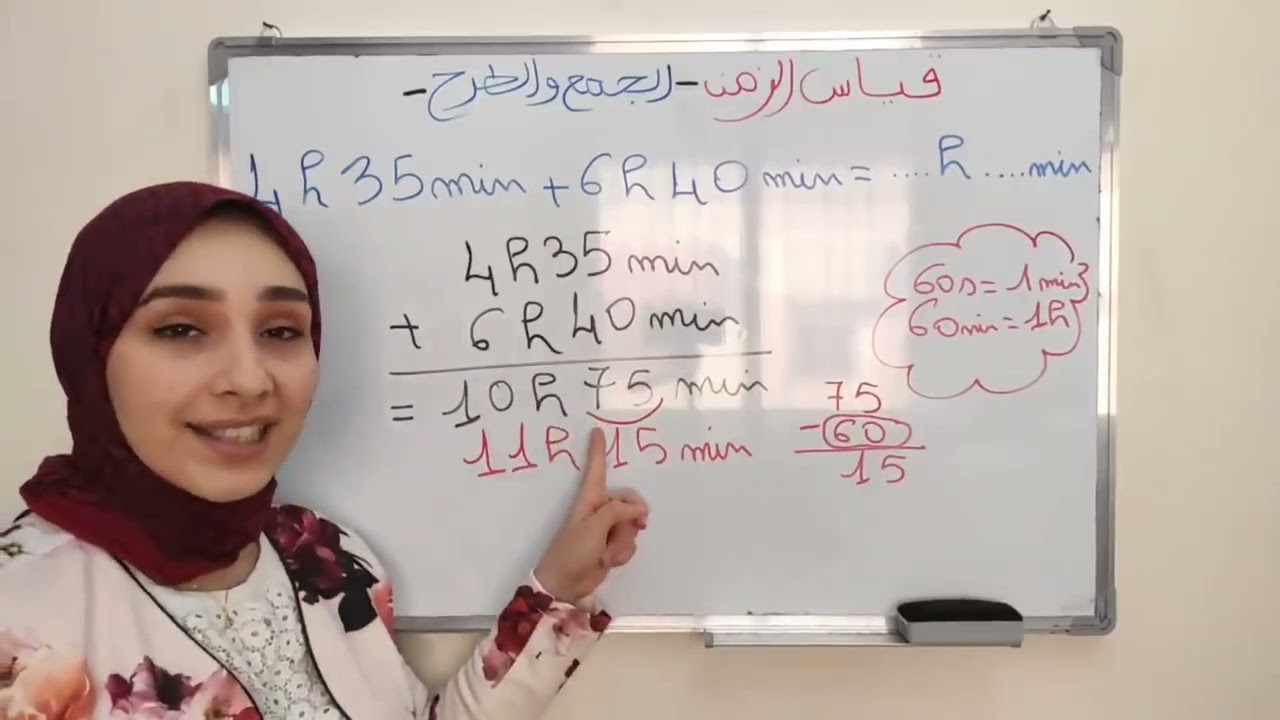 قياس الزمن - الجمع والطرح -
4h 35 min + 6h 40 min = .... h .... min
4h 35 min
+ 6h 40 min
= 10h 75 min
11h 15 min
60s = 1 min
60 min = 1h
75
- 60
15